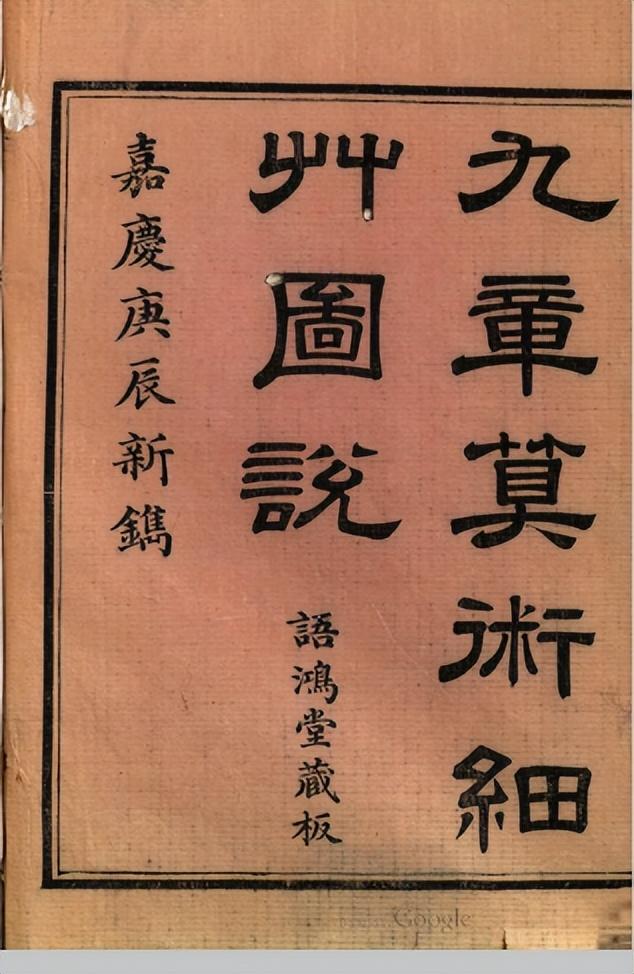 九章算術細
艸圖說
語鴻堂藏板
嘉慶庚辰新鐫
Google